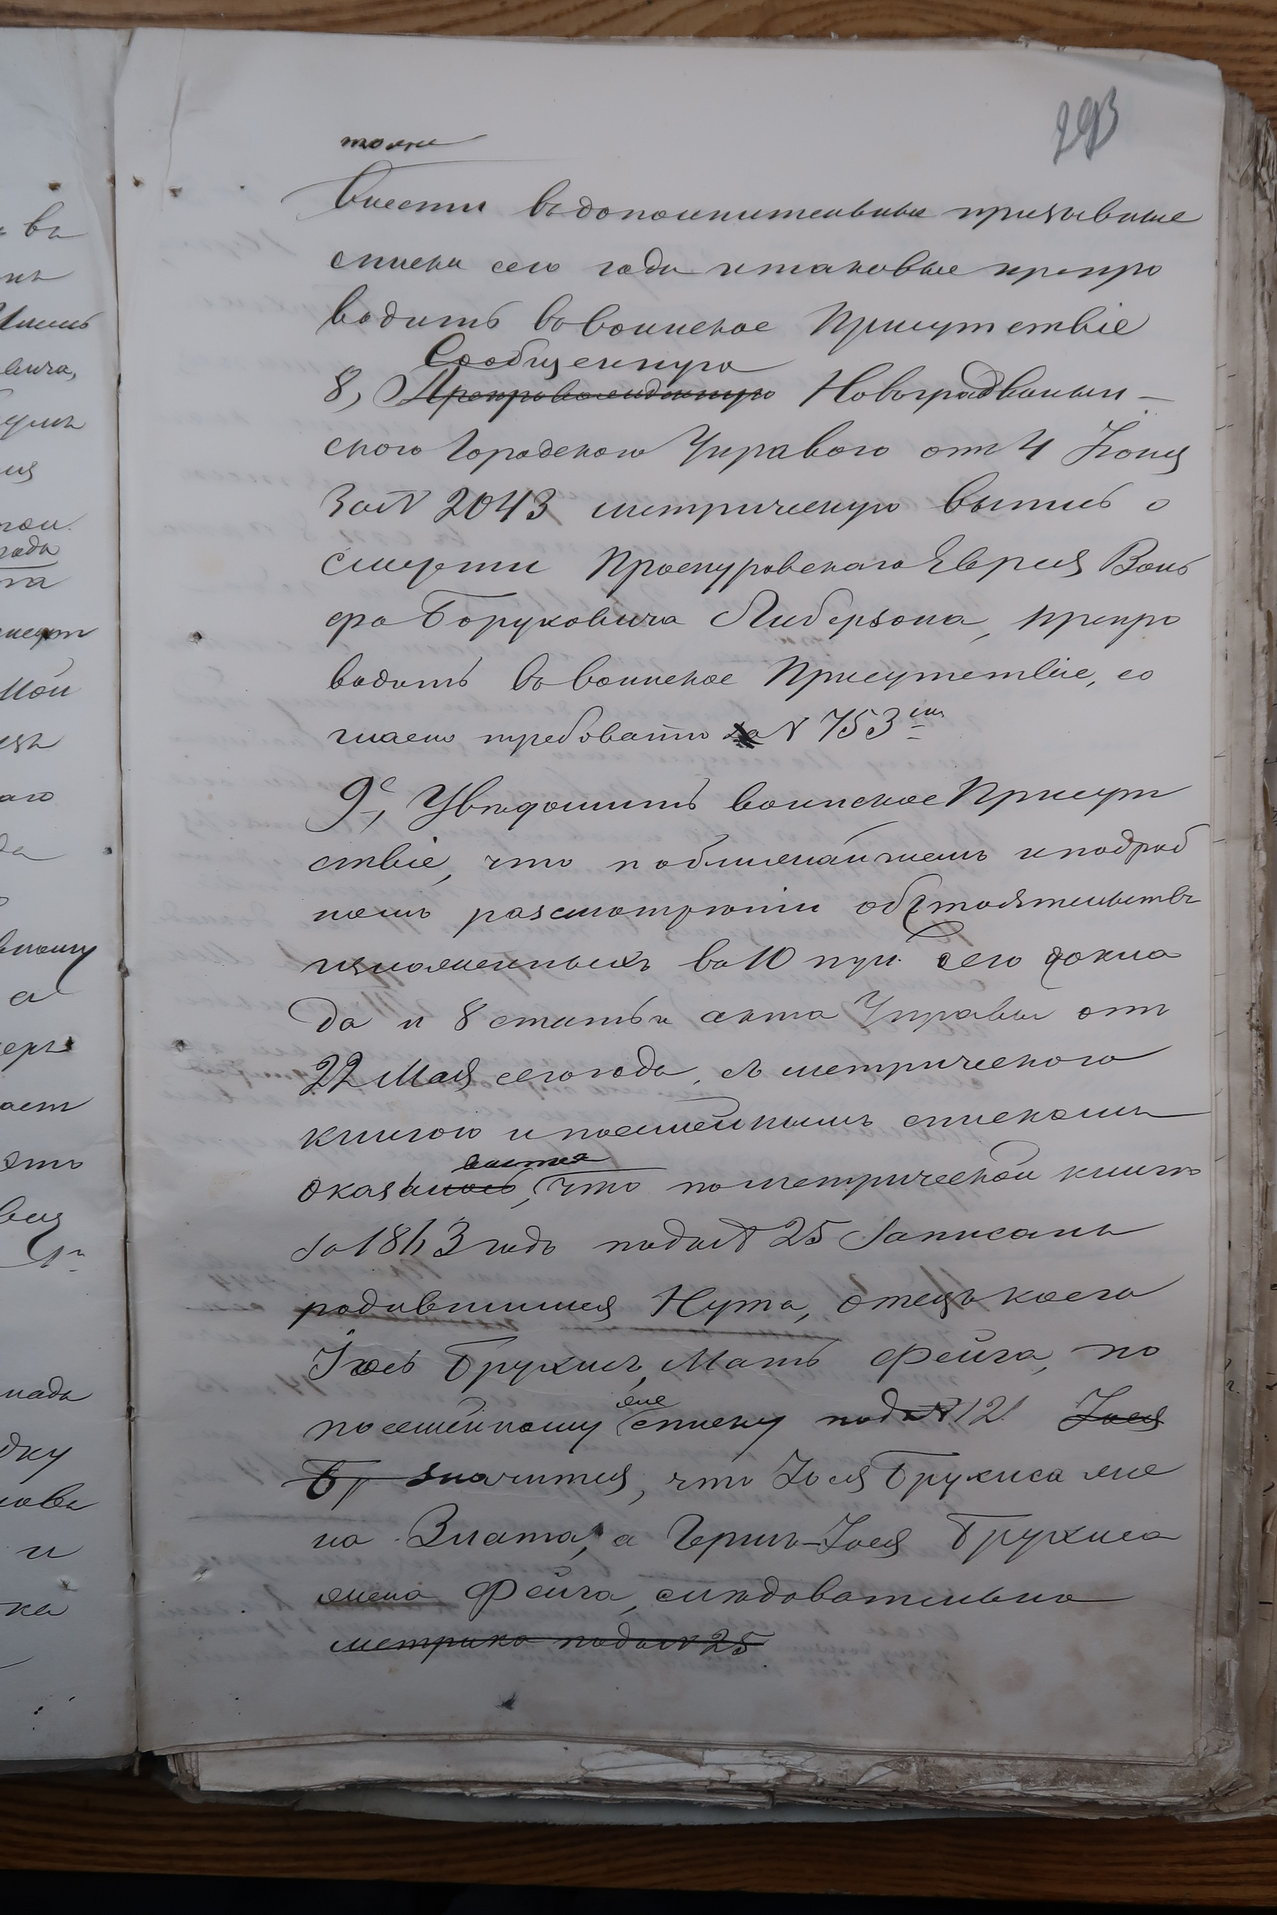 293
тоже
внести въ дополнительные призывные
списки сего года и таковые препро
водить въ воинское Присутствіе
Сообщенную
8, Препровожденную Новоградволын-
скою Городскою Управою отъ 4 Іюня
за № 2043 метрическую выпись о
смерти Проскуровскаго Еврея Воль
фа Боруховича Либерзона, препро
водить въ воинское Присутствіе, со
гласно требованію за № 753ему
9е, Увѣдомить воинское Присут
ствіе, что по ближайшемъ и подроб
номъ разсмотрѣніи обстоятельствъ
изложенныхъ въ 10 пун. сего докла
да и 8 статьи акта Управы отъ
22 Мая сего года, съ метрическою
книгою и посемейнымъ спискомъ
вается
оказалось, что по метрической книгѣ
за 1863 годъ подъ № 25 записанъ
родившимся Нута, отецъ коего
Іось Брухисъ, Мать Фейга, по
же
посемейному списку подъ № 121 Іося
Бр значится, что Іося Брухиса же
на Злата, а Герш-Іося Брухиса
жена Фейга, слѣдовательно
метрика подъ № 25
въ
а
и
ка